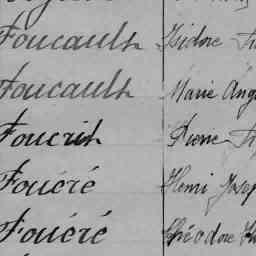 Foucault Isidore
Foucault Marie Ang
Foucrit Pierre
Fouéré Henri Josep
Fouéré Théodore